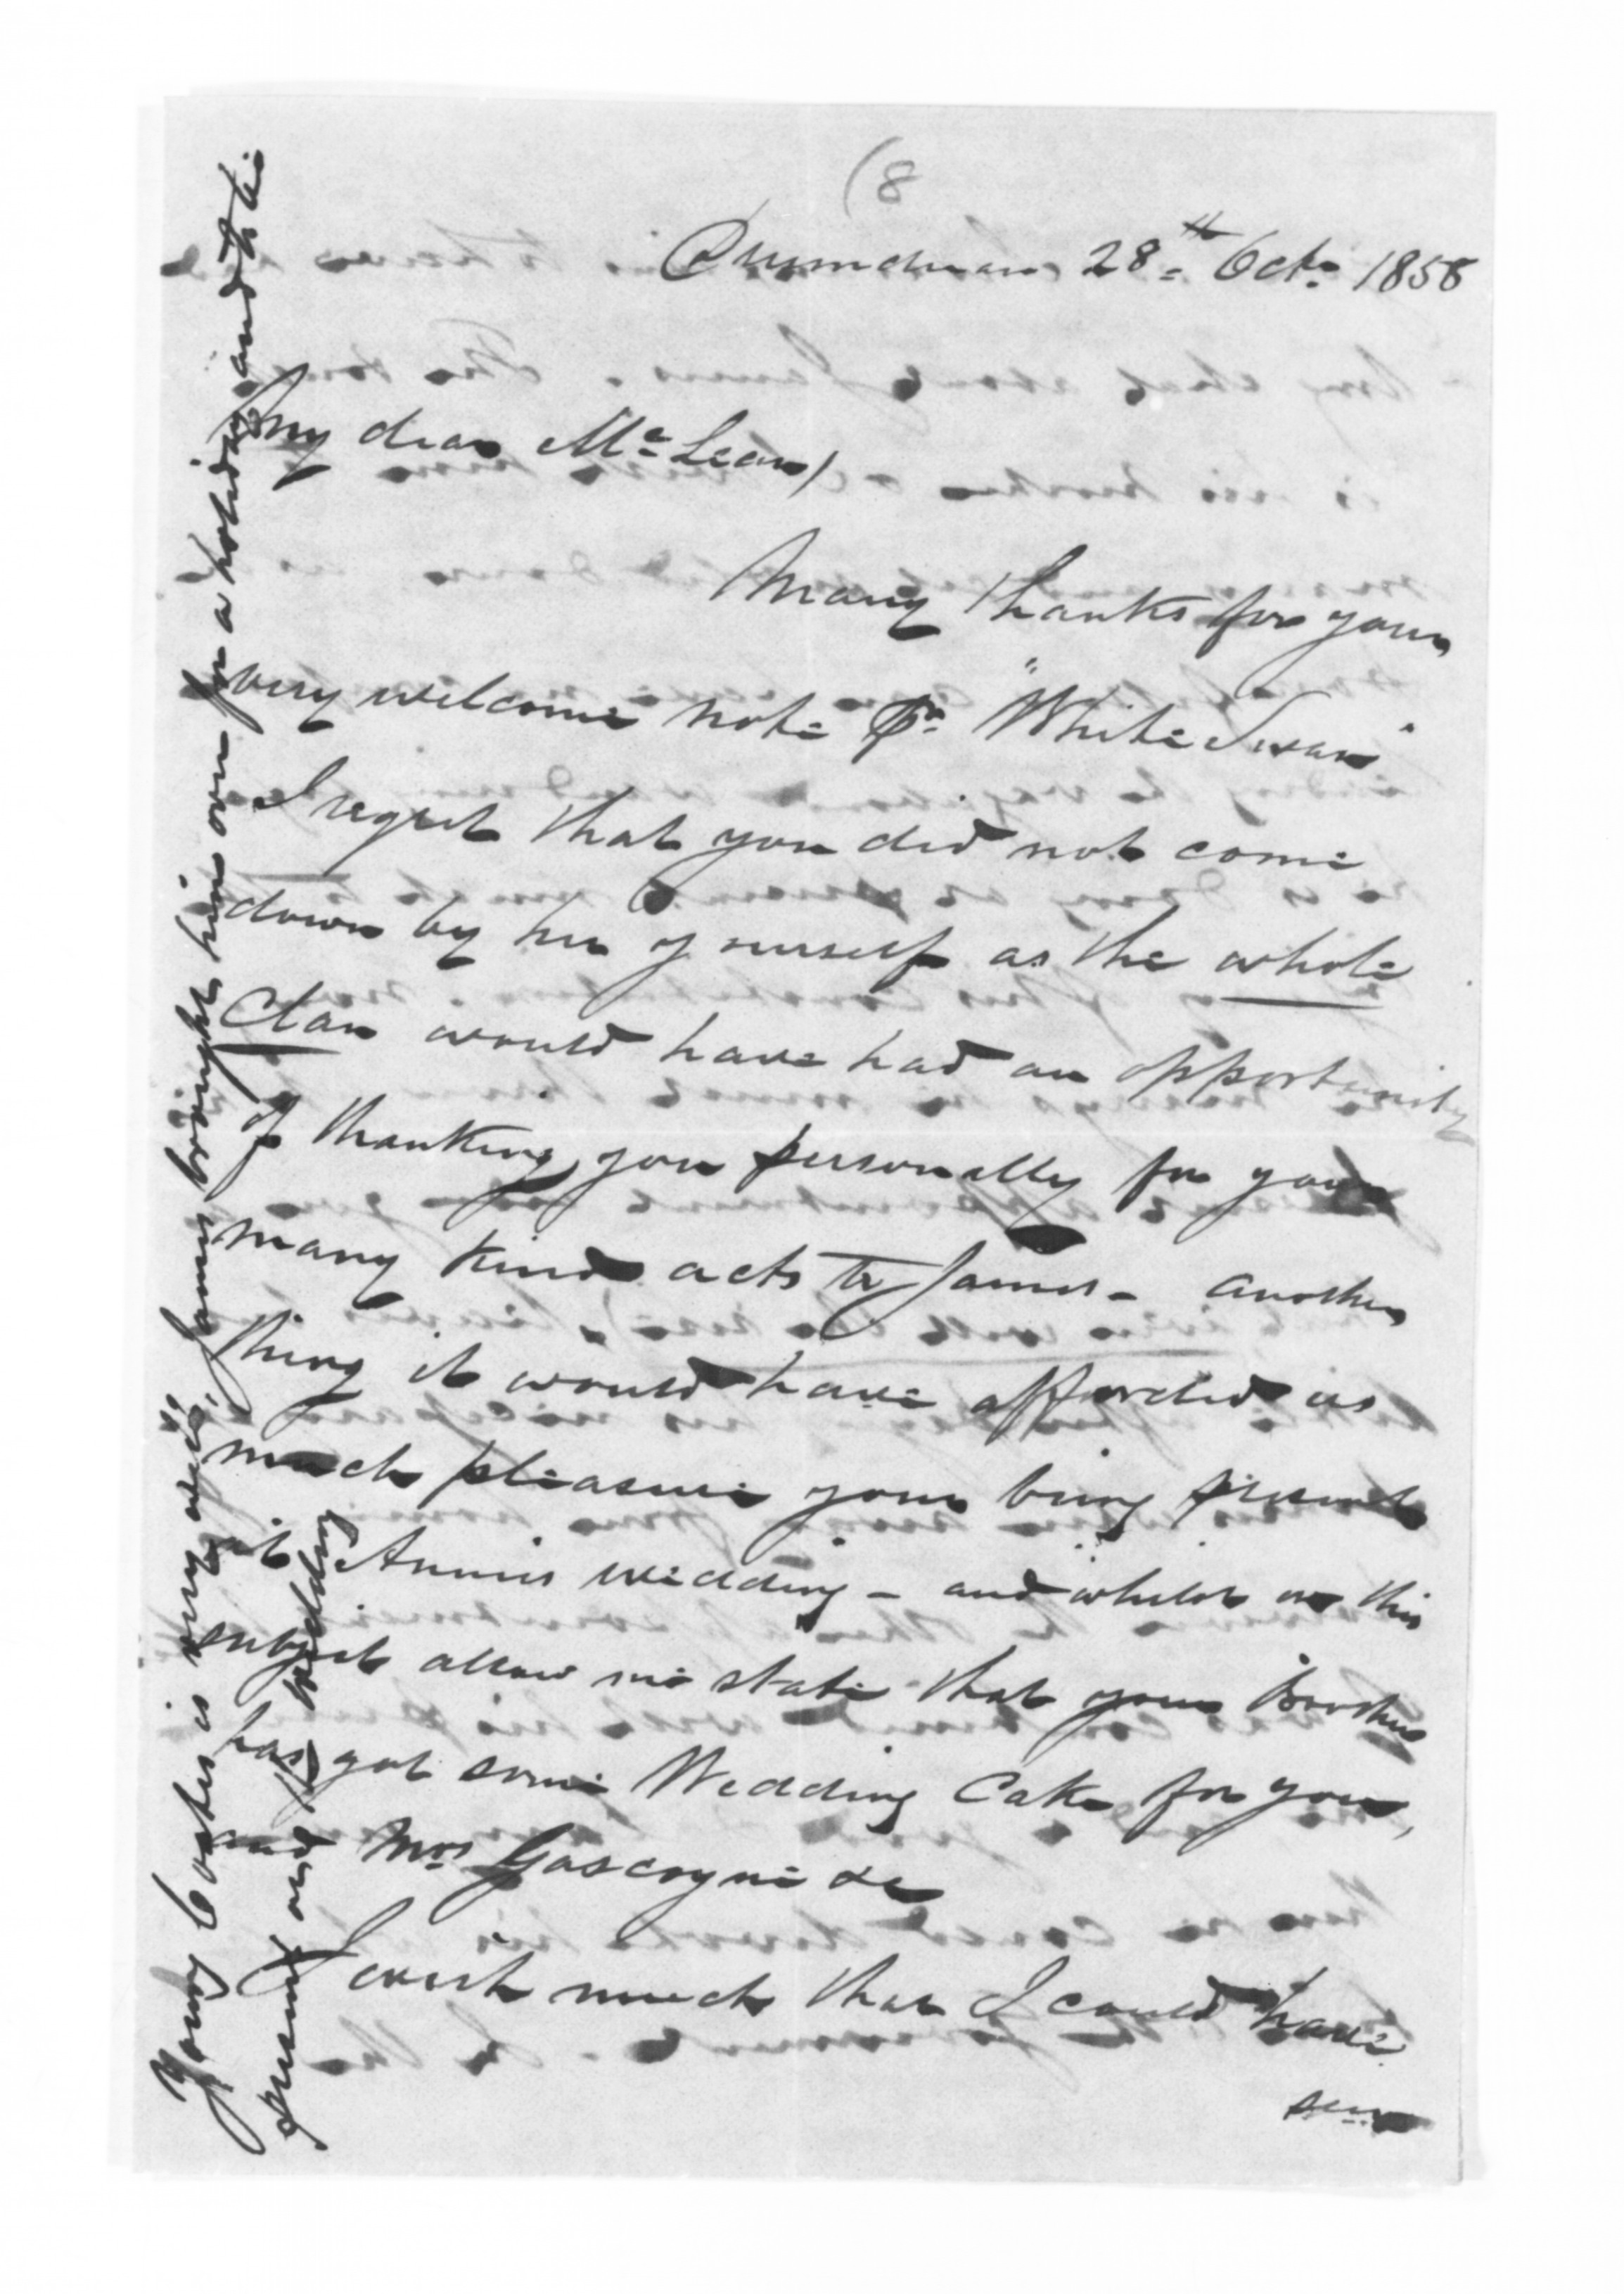 (8
28th Octr. 1858
My dear McLean/
Many thanks for your
very welcome note Pr. "White Swan"
I regret that you did not come
down by her yourself as the whole
Clan would have had an opportunity
of thanking you personally for your
many kind acts to James - another
thing it would have afforded us
much pleasure your being present
at Annies wedding - and whilst on this
subject allow me state that your Brother
has got some Wedding Cake for you,
and Mrs Gascoyne &c
I wish much that I could have
seen
Young Coates is very well, James brought him over for a holiday, and to be
present at the wedding